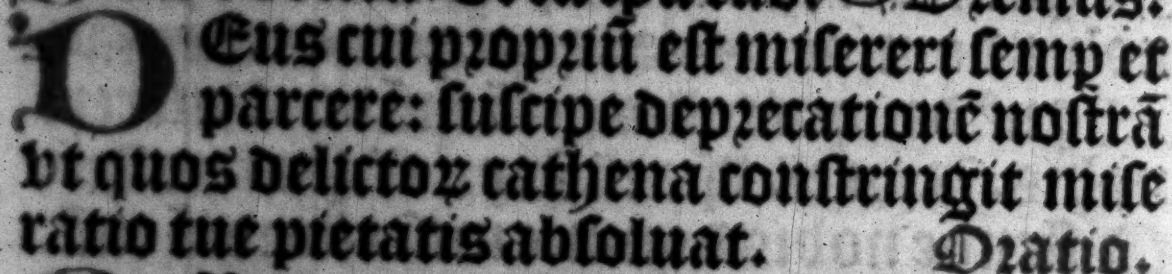 Oremus.
DEus cui propriū est misereri semꝑ et
parcere: suscipe deprecationē nostrā
vt quos delictoꝝ cathena constringit mise
ratio tue pietatis absoluat. Oratio.